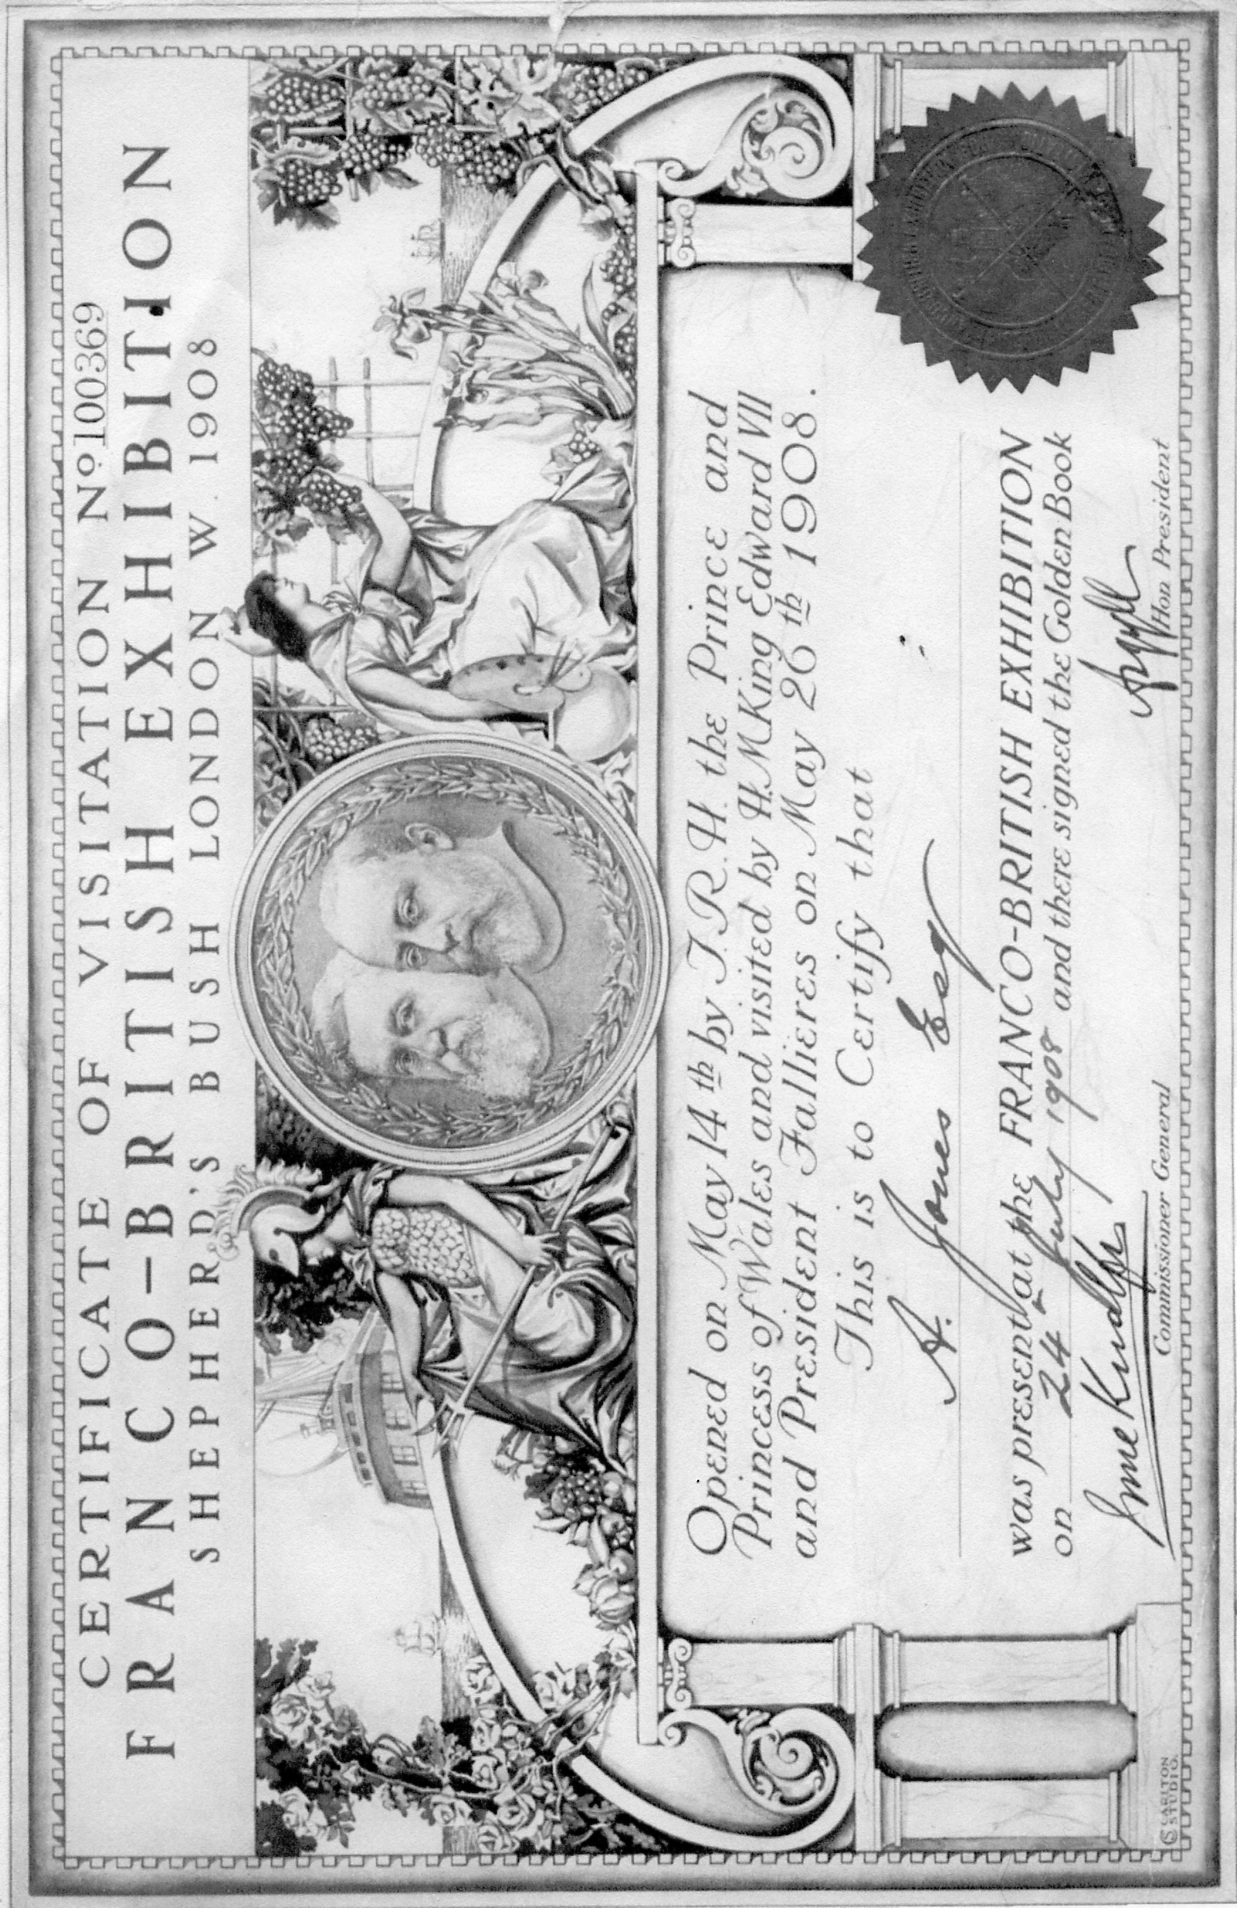 CERTIFICATE OF VISITATION Nº 100369
FRANCO-BRITISH EXHIBITION
SHEPHERD'S BUSH LONDON W. 1908
Opened on May 14th by T.R.H. the Prince and
Princess of Wales and visited by H.M King Edward VII
and President Fallieres on May 26th 1908.
This is to Certify that
A. Jones Esq
was present at the FRANCO-BRITISH EXHIBITION
on 24 July 1908 and there signed the Golden Book
Imre Kiralfy
Argyll
Commissioner General
Hon President
CARLTON
STUDIO.